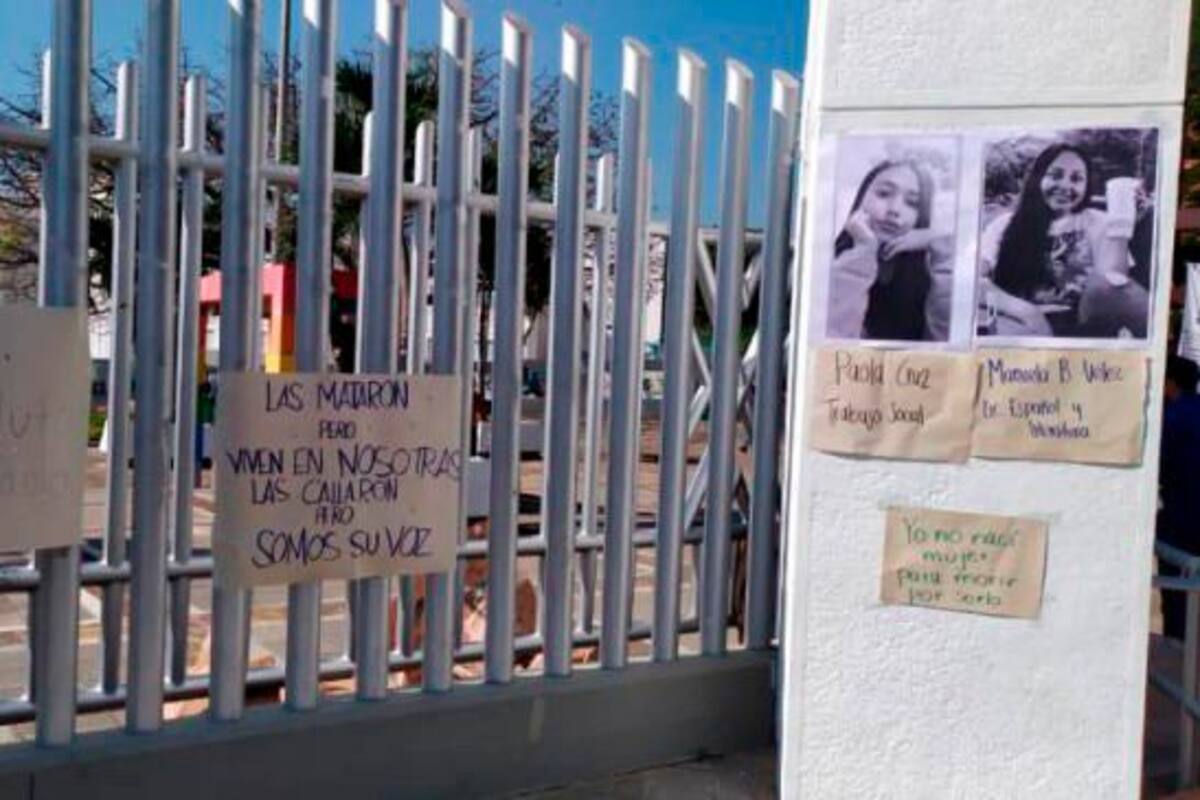 LAS MATARON
PERO
VIVEN EN NOSOTRAS
LAS CALLARON
PERO
SOMOS SU VOZ
Paola Cruz
Trabajo Social
Manuela B Vélez
Lic. Español y
literatura
Yo no nací
mujer
para morir
por serlo